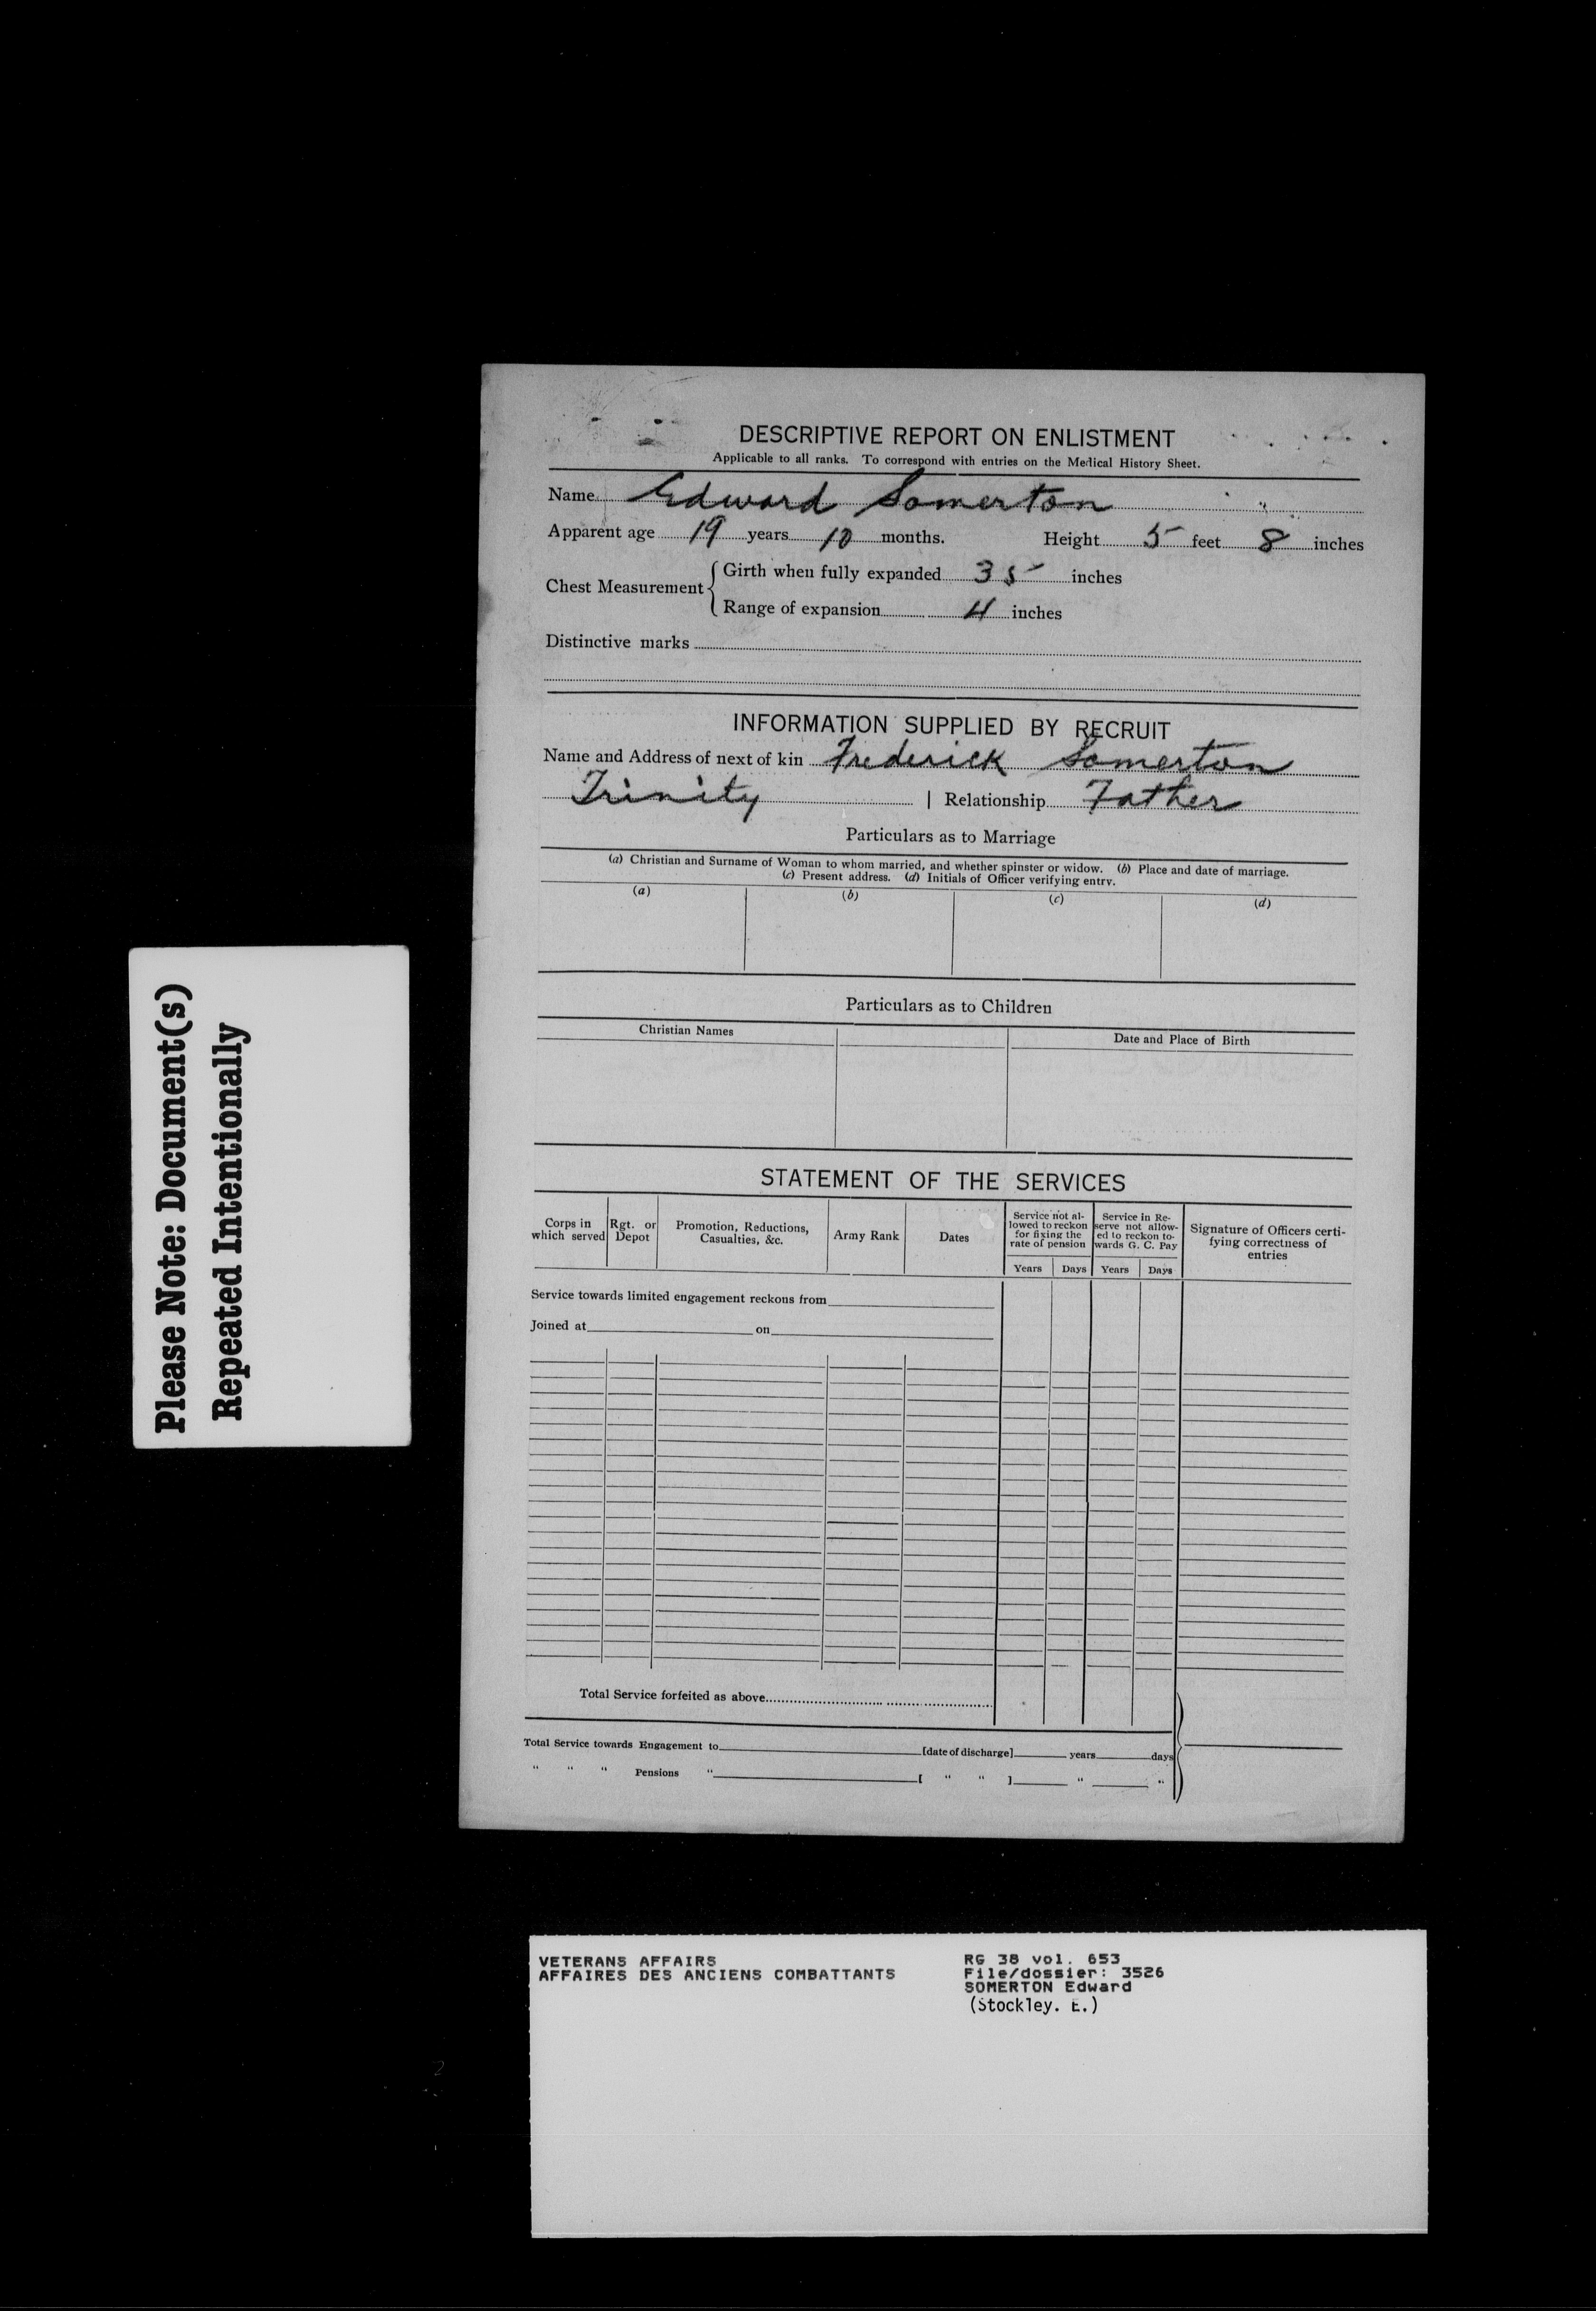 DESCRIPTIVE REPORT ON ENLISTMENT
Applicable to all ranks. To correspond with entries on the Medical History Sheet.
Name Edward Somerton
Apparent age 19 years 10 months. Height 5 feet 8 inches
Chest Measurement { Girth when fully expanded 35 inches
Range of expansion 4 inches
Distinctive marks
INFORMATION SUPPLIED BY RECRUIT
Name and Address of next of kin Frederick Somerton
Trinity | Relationship Father
Particulars as to Marriage
(a) Christian and Surname of Woman to whom married, and whether spinster or widow. (b) Place and date of marriage.
(c) Present address. (d) Initials of Officer verifying entry.
(a) (b) (c) (d)
Particulars as to Children
Christian Names Date and Place of Birth
STATEMENT OF THE SERVICES
Corps in which served
Rgt. or Depot
Promotion, Reductions, Casualties, &c.
Army Rank
Dates
Service not allowed to reckon for fixing the rate of pension
Service in Reserve not allowed to reckon towards G. C. Pay
Signature of Officers certifying correctness of entries
Years Days Years Days
Service towards limited engagement reckons from
Joined at on
Total Service forfeited as above
Total Service towards Engagement to [date of discharge] years days
" " " Pensions " [ " " ] " "
Please Note: Document(s)
Repeated Intentionally
VETERANS AFFAIRS
AFFAIRES DES ANCIENS COMBATTANTS
RG 38 vol. 653
File/dossier: 3526
SOMERTON Edward
(Stockley. E.)